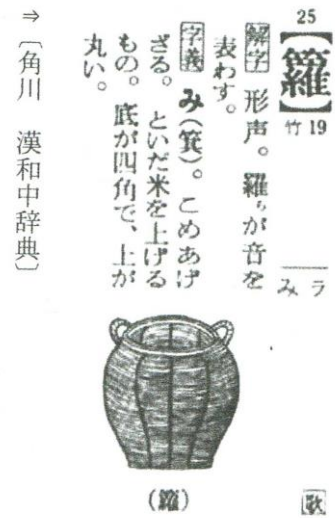 25
【籮】
竹19
ラ
み
歌
解字 形声。羅ラが音を
表わす。
字義 み(箕)。こめあげ
ざる。 といだ米を上げる
もの。底が四角で、上が
丸い。
(籮)
⇒〔角川 漢和中辞典〕